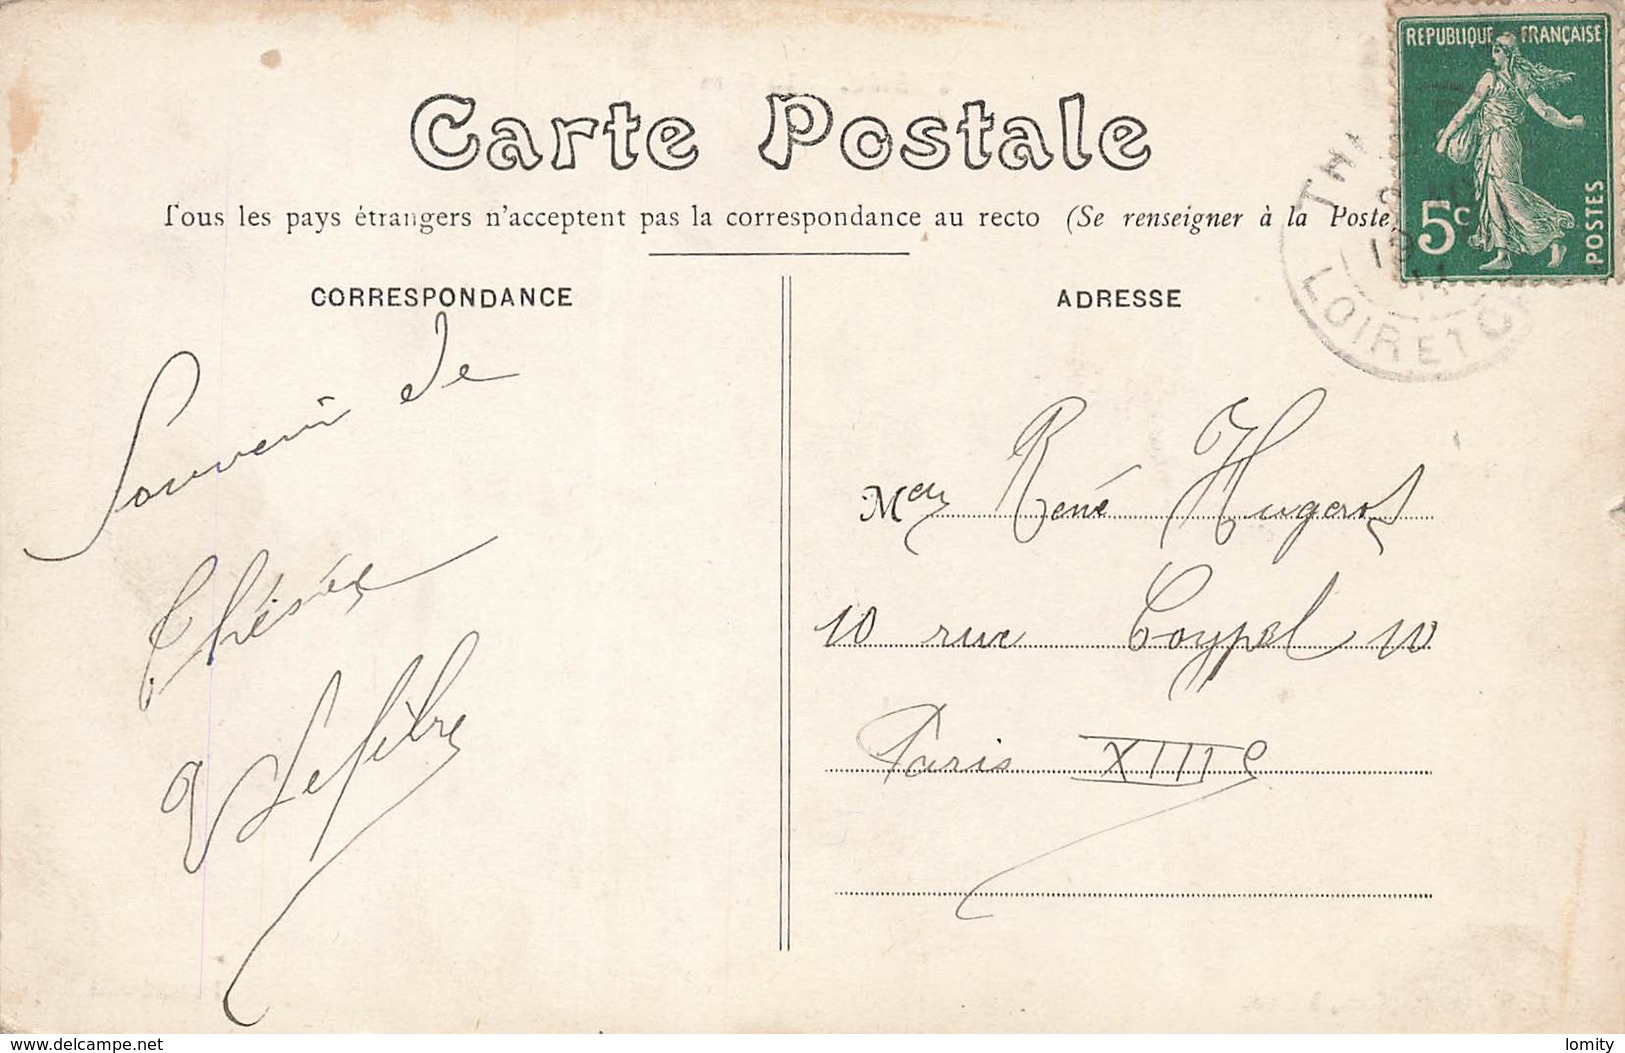 Carte Postale
Tous les pays étrangers n'acceptent pas la correspondance au recto (Se renseigner à la Poste)
REPUBLIQUE FRANÇAISE
5c
POSTES
LOIR ET CH
CORRESPONDANCE
ADRESSE
Souvenir de
Thésée
Lefebre
René
10 rue Coypel 10
Paris XIIIe
delcampe.net
lomity